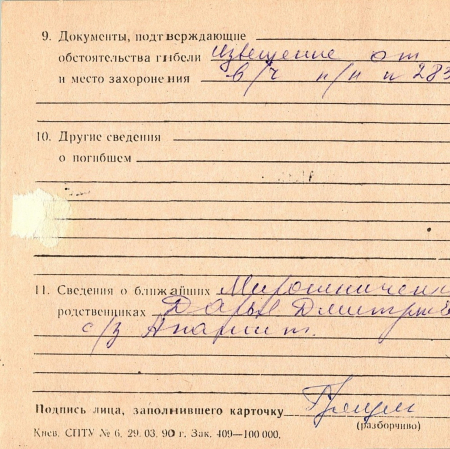 9. Документы, подтверждающие
обстоятельства гибели извещение от
и место захоронения в/ч п/п № 283
10. Другие сведения
о погибшем
11. Сведения о ближайших Мирошничен
родственниках Дарья Дмитрие
с/з
Подпись лица, заполнившего карточку
(разборчиво)
Киев. СПТУ № 6. 29. 03. 90 г. Зак. 409—100 000.